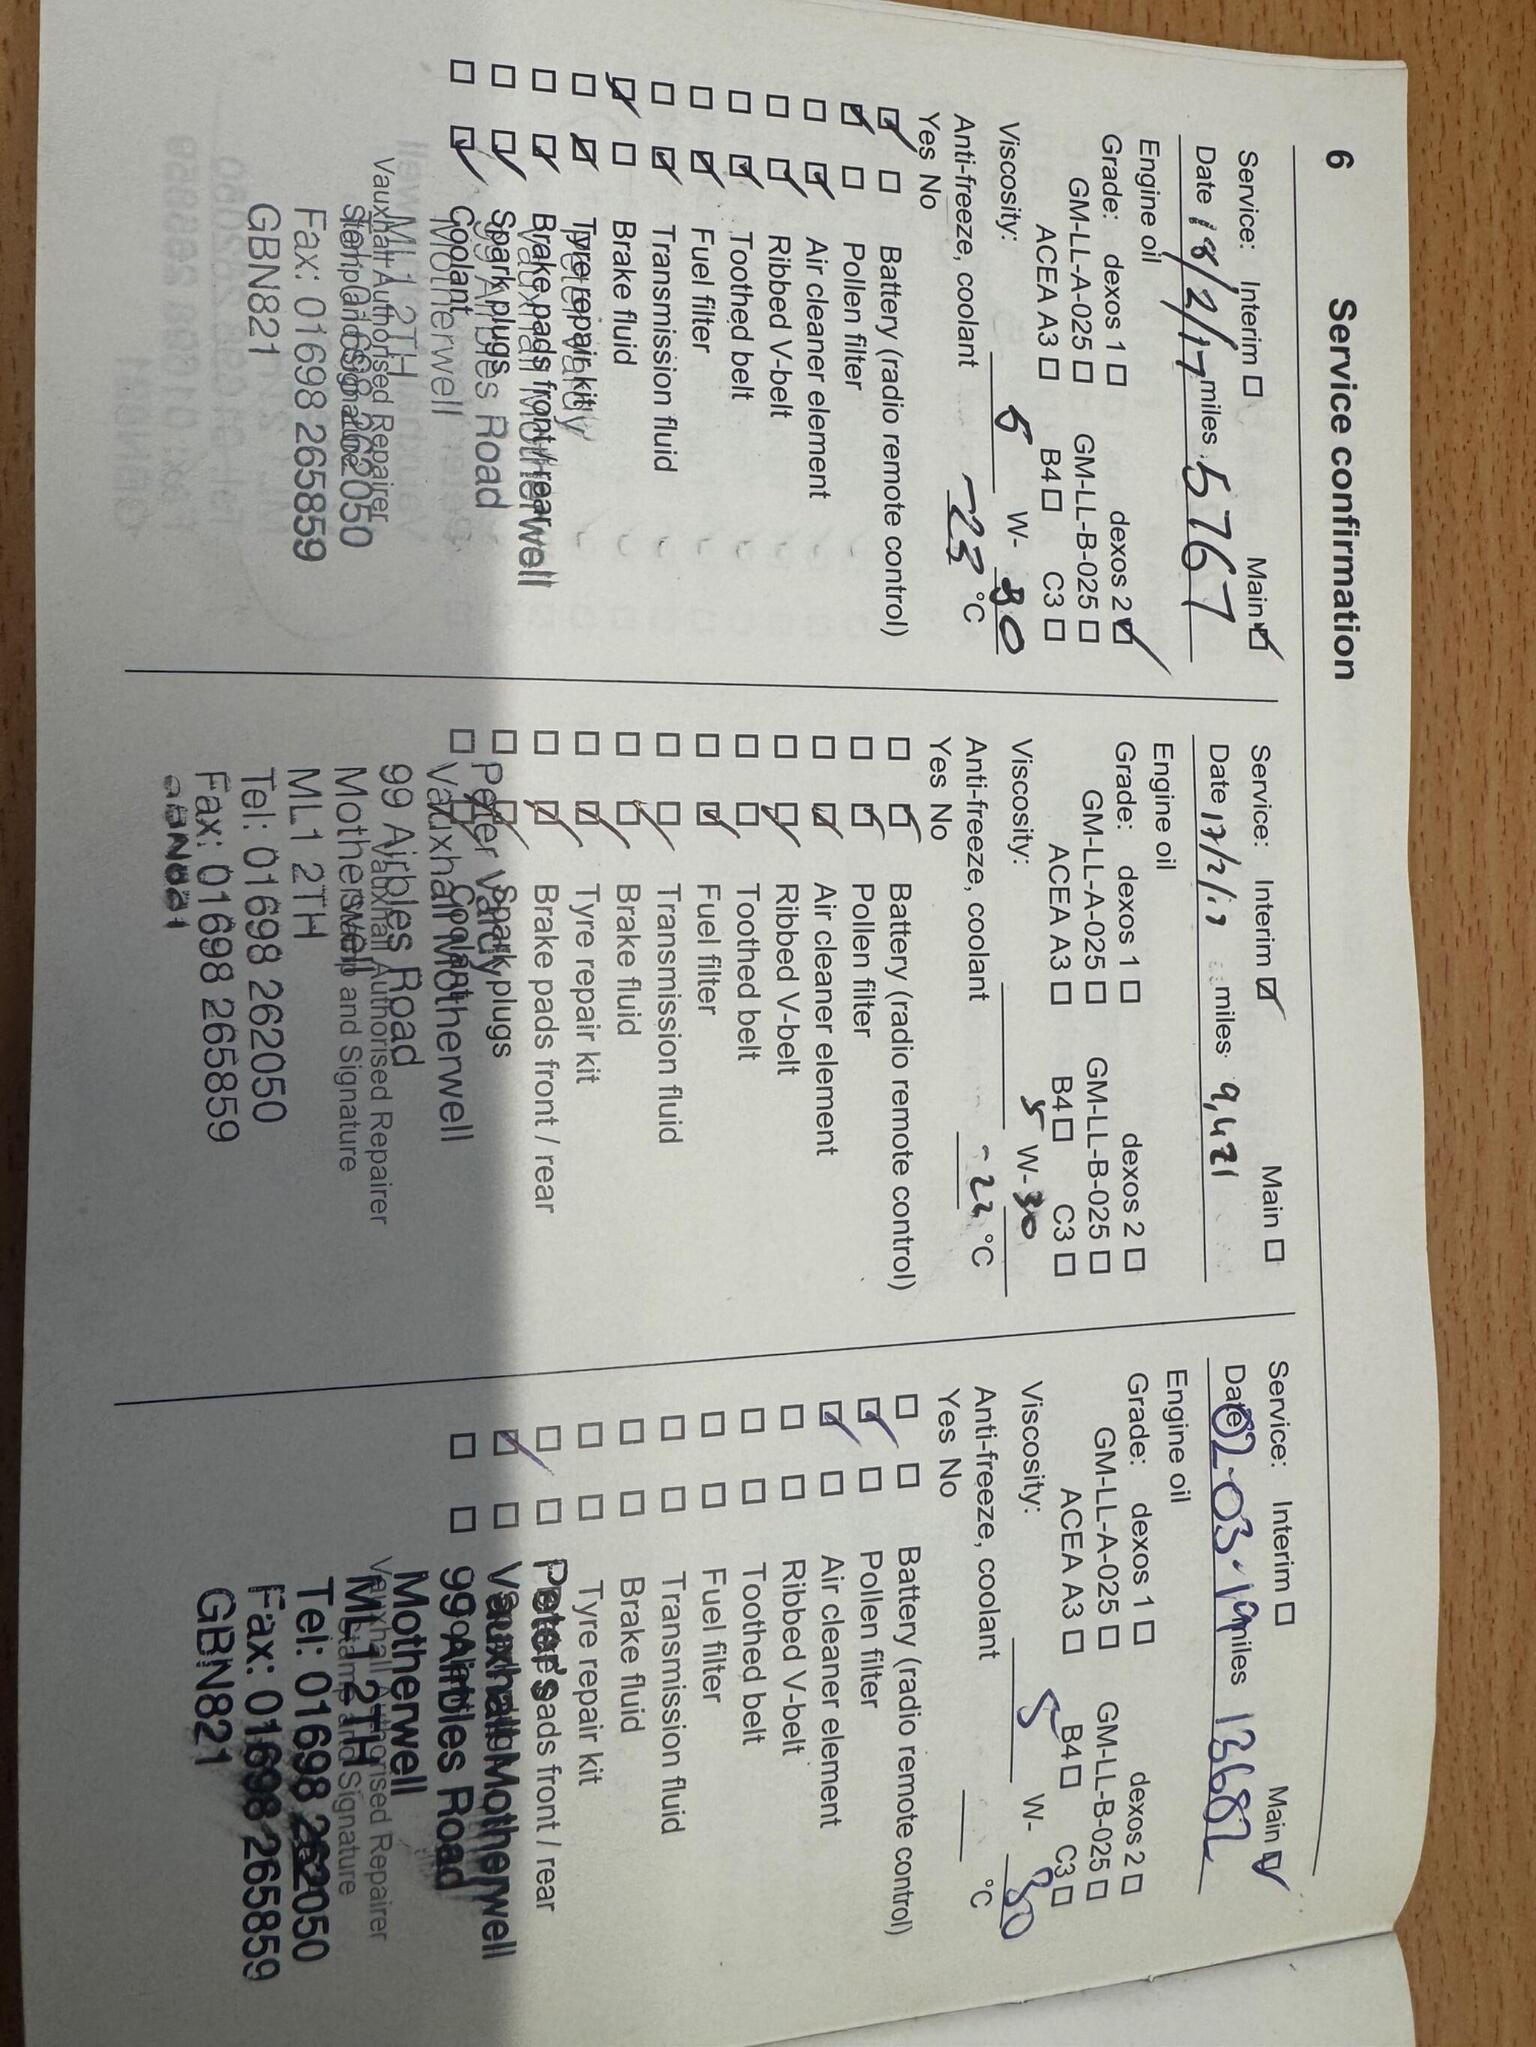 6 Service confirmation
Service: Interim ☐ Main ☑
Date 18/2/17 miles 5767
Engine oil
Grade: dexos 1 ☐ dexos 2 ☑
GM-LL-A-025 ☐ GM-LL-B-025 ☐
ACEA A3 ☐ B4 ☐ C3 ☐
Viscosity: 5 W- 30
Anti-freeze, coolant -23 °C
Yes No
☑ ☐ Battery (radio remote control)
☑ ☐ Pollen filter
☐ ☑ Air cleaner element
☐ ☑ Ribbed V-belt
☐ ☑ Toothed belt
☐ ☑ Fuel filter
☐ ☑ Transmission fluid
☑ ☐ Brake fluid
☐ ☑ Tyre repair kit
☐ ☑ Brake pads front / rear
☐ ☑ Spark plugs
☐ ☑ Coolant
Vauxhall Motherwell
99 Airbles Road
Motherwell
ML1 2TH
Vauxhall Authorised Repairer
Stamp and Signature
Tel: 01698 262050
Fax: 01698 265859
GBN821
Service: Interim ☑ Main ☐
Date miles 9,421
Engine oil
Grade: dexos 1 ☐ dexos 2 ☐
GM-LL-A-025 ☐ GM-LL-B-025 ☐
ACEA A3 ☐ B4 ☐ C3 ☐
Viscosity: 5 W-30
Anti-freeze, coolant °C
Yes No
☐ ☑ Battery (radio remote control)
☐ ☑ Pollen filter
☐ ☑ Air cleaner element
☐ ☑ Ribbed V-belt
☐ ☐ Toothed belt
☐ ☑ Fuel filter
☐ ☐ Transmission fluid
☐ ☑ Brake fluid
☐ ☑ Tyre repair kit
☐ ☑ Brake pads front / rear
☐ ☑ Spark plugs
☐ ☑ Coolant
Peter Vardy
Vauxhall Motherwell
99 Airbles Road
Vauxhall Authorised Repairer
Motherwell
Stamp and Signature
ML1 2TH
Tel: 01698 262050
Fax: 01698 265859
GBN821
Service: Interim ☐ Main ☑
Date 02-03-19 miles 13682
Engine oil
Grade: dexos 1 ☐ dexos 2 ☐
GM-LL-A-025 ☐ GM-LL-B-025 ☐
ACEA A3 ☐ B4 ☐ C3 ☐
Viscosity: 5 W- 30
Anti-freeze, coolant °C
Yes No
☐ ☐ Battery (radio remote control)
☑ ☐ Pollen filter
☑ ☐ Air cleaner element
☐ ☐ Ribbed V-belt
☐ ☐ Toothed belt
☐ ☐ Fuel filter
☐ ☐ Transmission fluid
☐ ☐ Brake fluid
☐ ☐ Tyre repair kit
☐ ☐ Brake pads front / rear
☑ ☐
☐ ☐
Peter's
Vauxhall Motherwell
99 Airbles Road
Motherwell
Vauxhall Authorised Repairer
ML1 2TH
Stamp and Signature
Tel: 01698 262050
Fax: 01698 265859
GBN821